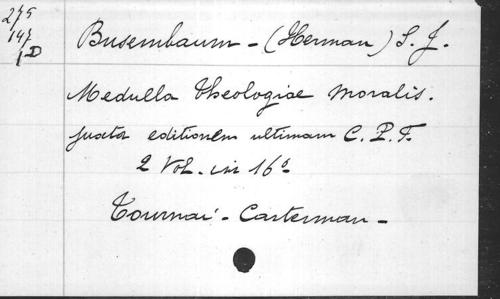 275
147
1D
Busembaum - (Herman) S. J.
Medulla theologiae moralis.
juxta editionem ultimam C. P. F.
2 Vol. in 16º
Tournai - Casterman -